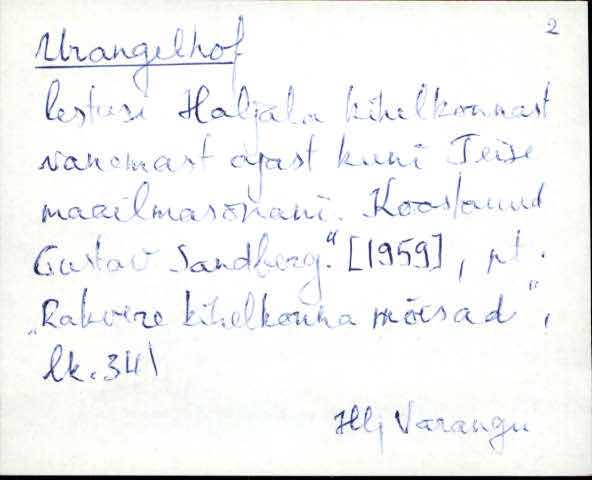 2
Wrangelhof
lestusi Haljala kihelkonnast
vanemast ajast kuni Teise
maailmasõnani. Koostanud
Gustav Sandberg." [1959], pt.
"Rakvere kihelkonna mõisad",
lk. 34\
Hlj Varangu